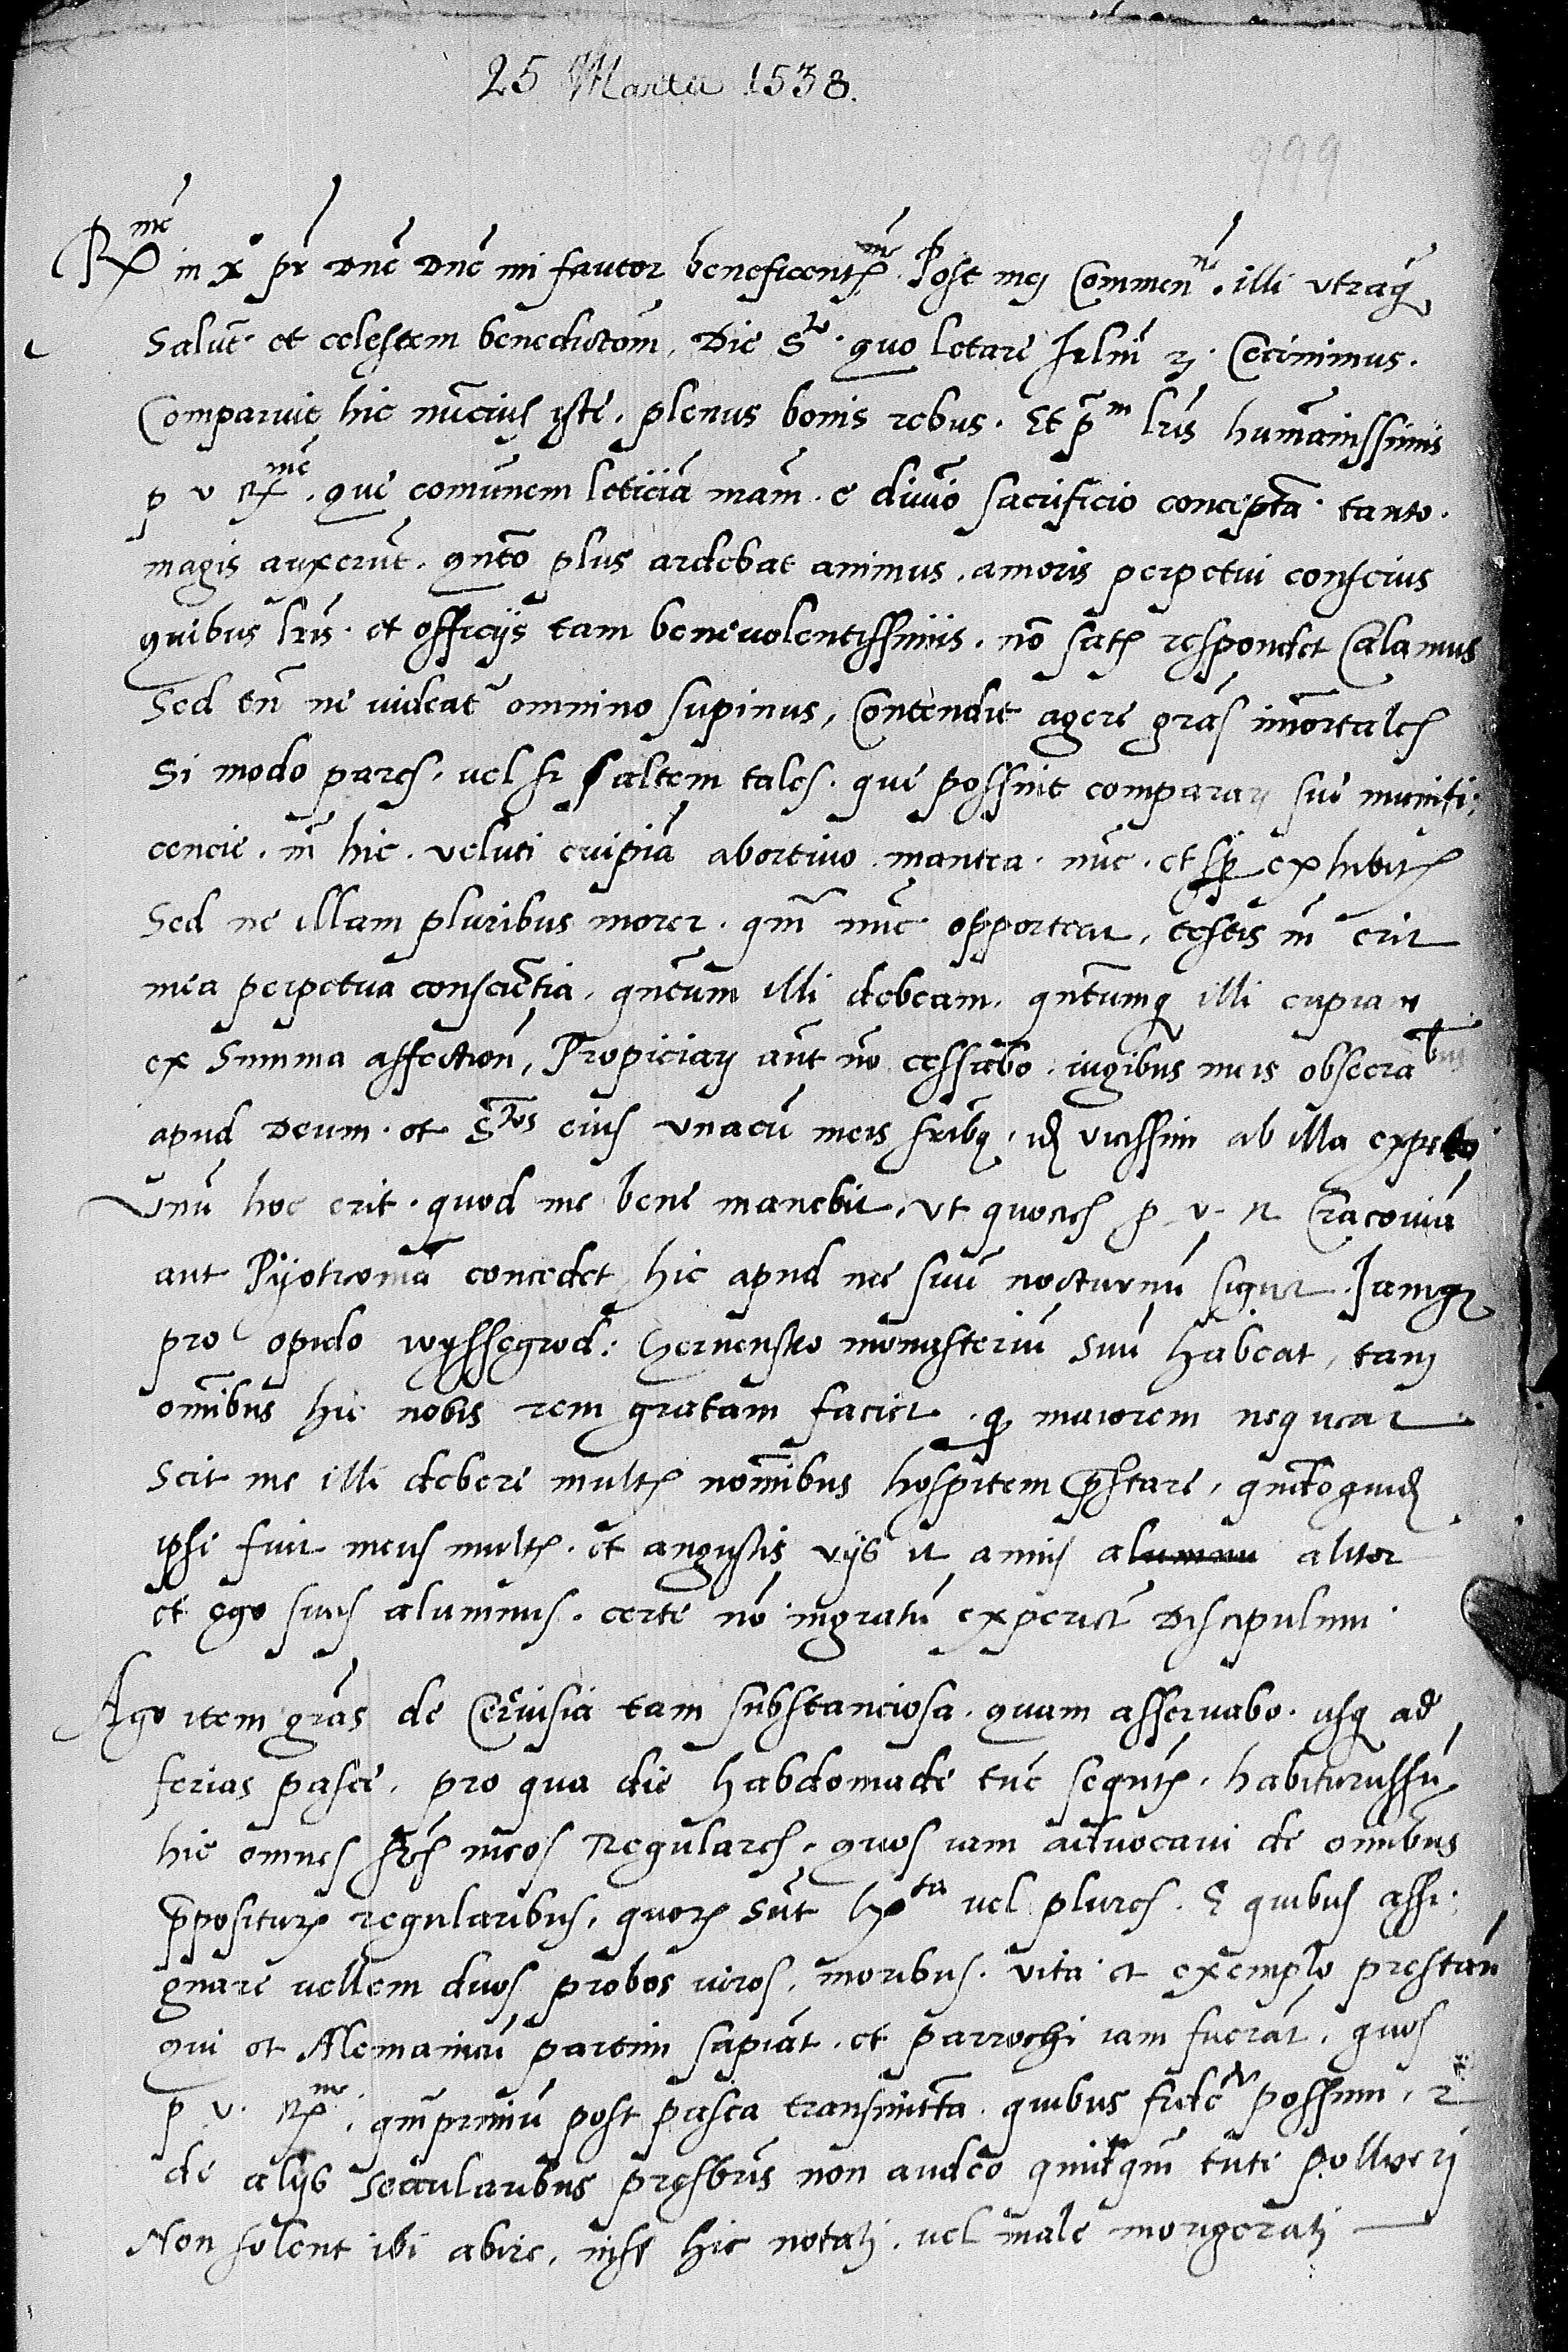 25 Martii 1538.
999
Rme in x° pr dne dne mi fautor beneficentme. Post mei Commenne. illi utramq
Salute et celestem benedictom. Die S°. quo letare Jrlm etc. Cecinimus.
Comparuit hic nuncius iste. plenus bonis rebus. Et pm lris humanissimis
p v Rme. que comunem leticia mam. e divino sacrificio concepta tanto.
magis auxerunt. qnto plus ardebat animus. amoris perpetui conscius
quibus lris. et officiis tam benevolentissimis. no satis respondet Calamus
Sed tn ne videat omnino supinus, Contendit agere gras immortales
Si modo pares. vel si saltem tales. que possint comparari sue munifi:
cencie. in hic. veluti cuipia abortivo mantea nunc. et sp exhibitis
Sed ne illam pluribus morer. qm nunc opporteat, testis in erit
mea perpetua conscientia. qntum illi debeam. qntumq illi cupiam
ex Summa affection, Propiciari aut no cessabo. iugibus meis obsecrabus
apud Deum. et Stos eius unacu meis fribq. id vicissim ab illa expeto
Unu hoc erit. quod me bene manebit, ut quocies p. v. R Cracovia
aut Pyotrcovia concedet hic apud me suu nocturnu figat. Jamq
pro opido wyssegrod: Czerwensko monasteriu Suu habeat, tam
omibus hic nobis rem gratam faciet. q maiorem nequeat.
Scit me illi debere multis nominibus hospitem prestare, qndoquid
ipse fuit meus multis. et angustis viis et annis alumnu alitor
et ego suus alumnus. certe no ingratu experiet Discipulum.
Ago item gras de Cerevisia tam substanciosa. quam asservabo. usq ad
ferias pasce, pro qua die habdomade tuc sequntis. habiturussu
hic omnes fres meos Regulares. quos iam advocavi de omnibus
prposituris regularibus, quoru Sut lxta vel plures. E quibus assi:
gnare vellem duos probos viros. moribus. vita et exemplo prestan
qui et Alemanicu partim sapiat. et parrochi iam fuerat. quos
p v. Rme. qmprimu post pasca transmittam. quibus fidere possum, et
de aliis Secularibus presbris non audeo quicqm tute polliceri
Non solent ibi abire, nisi hic notati. vel male morigerati